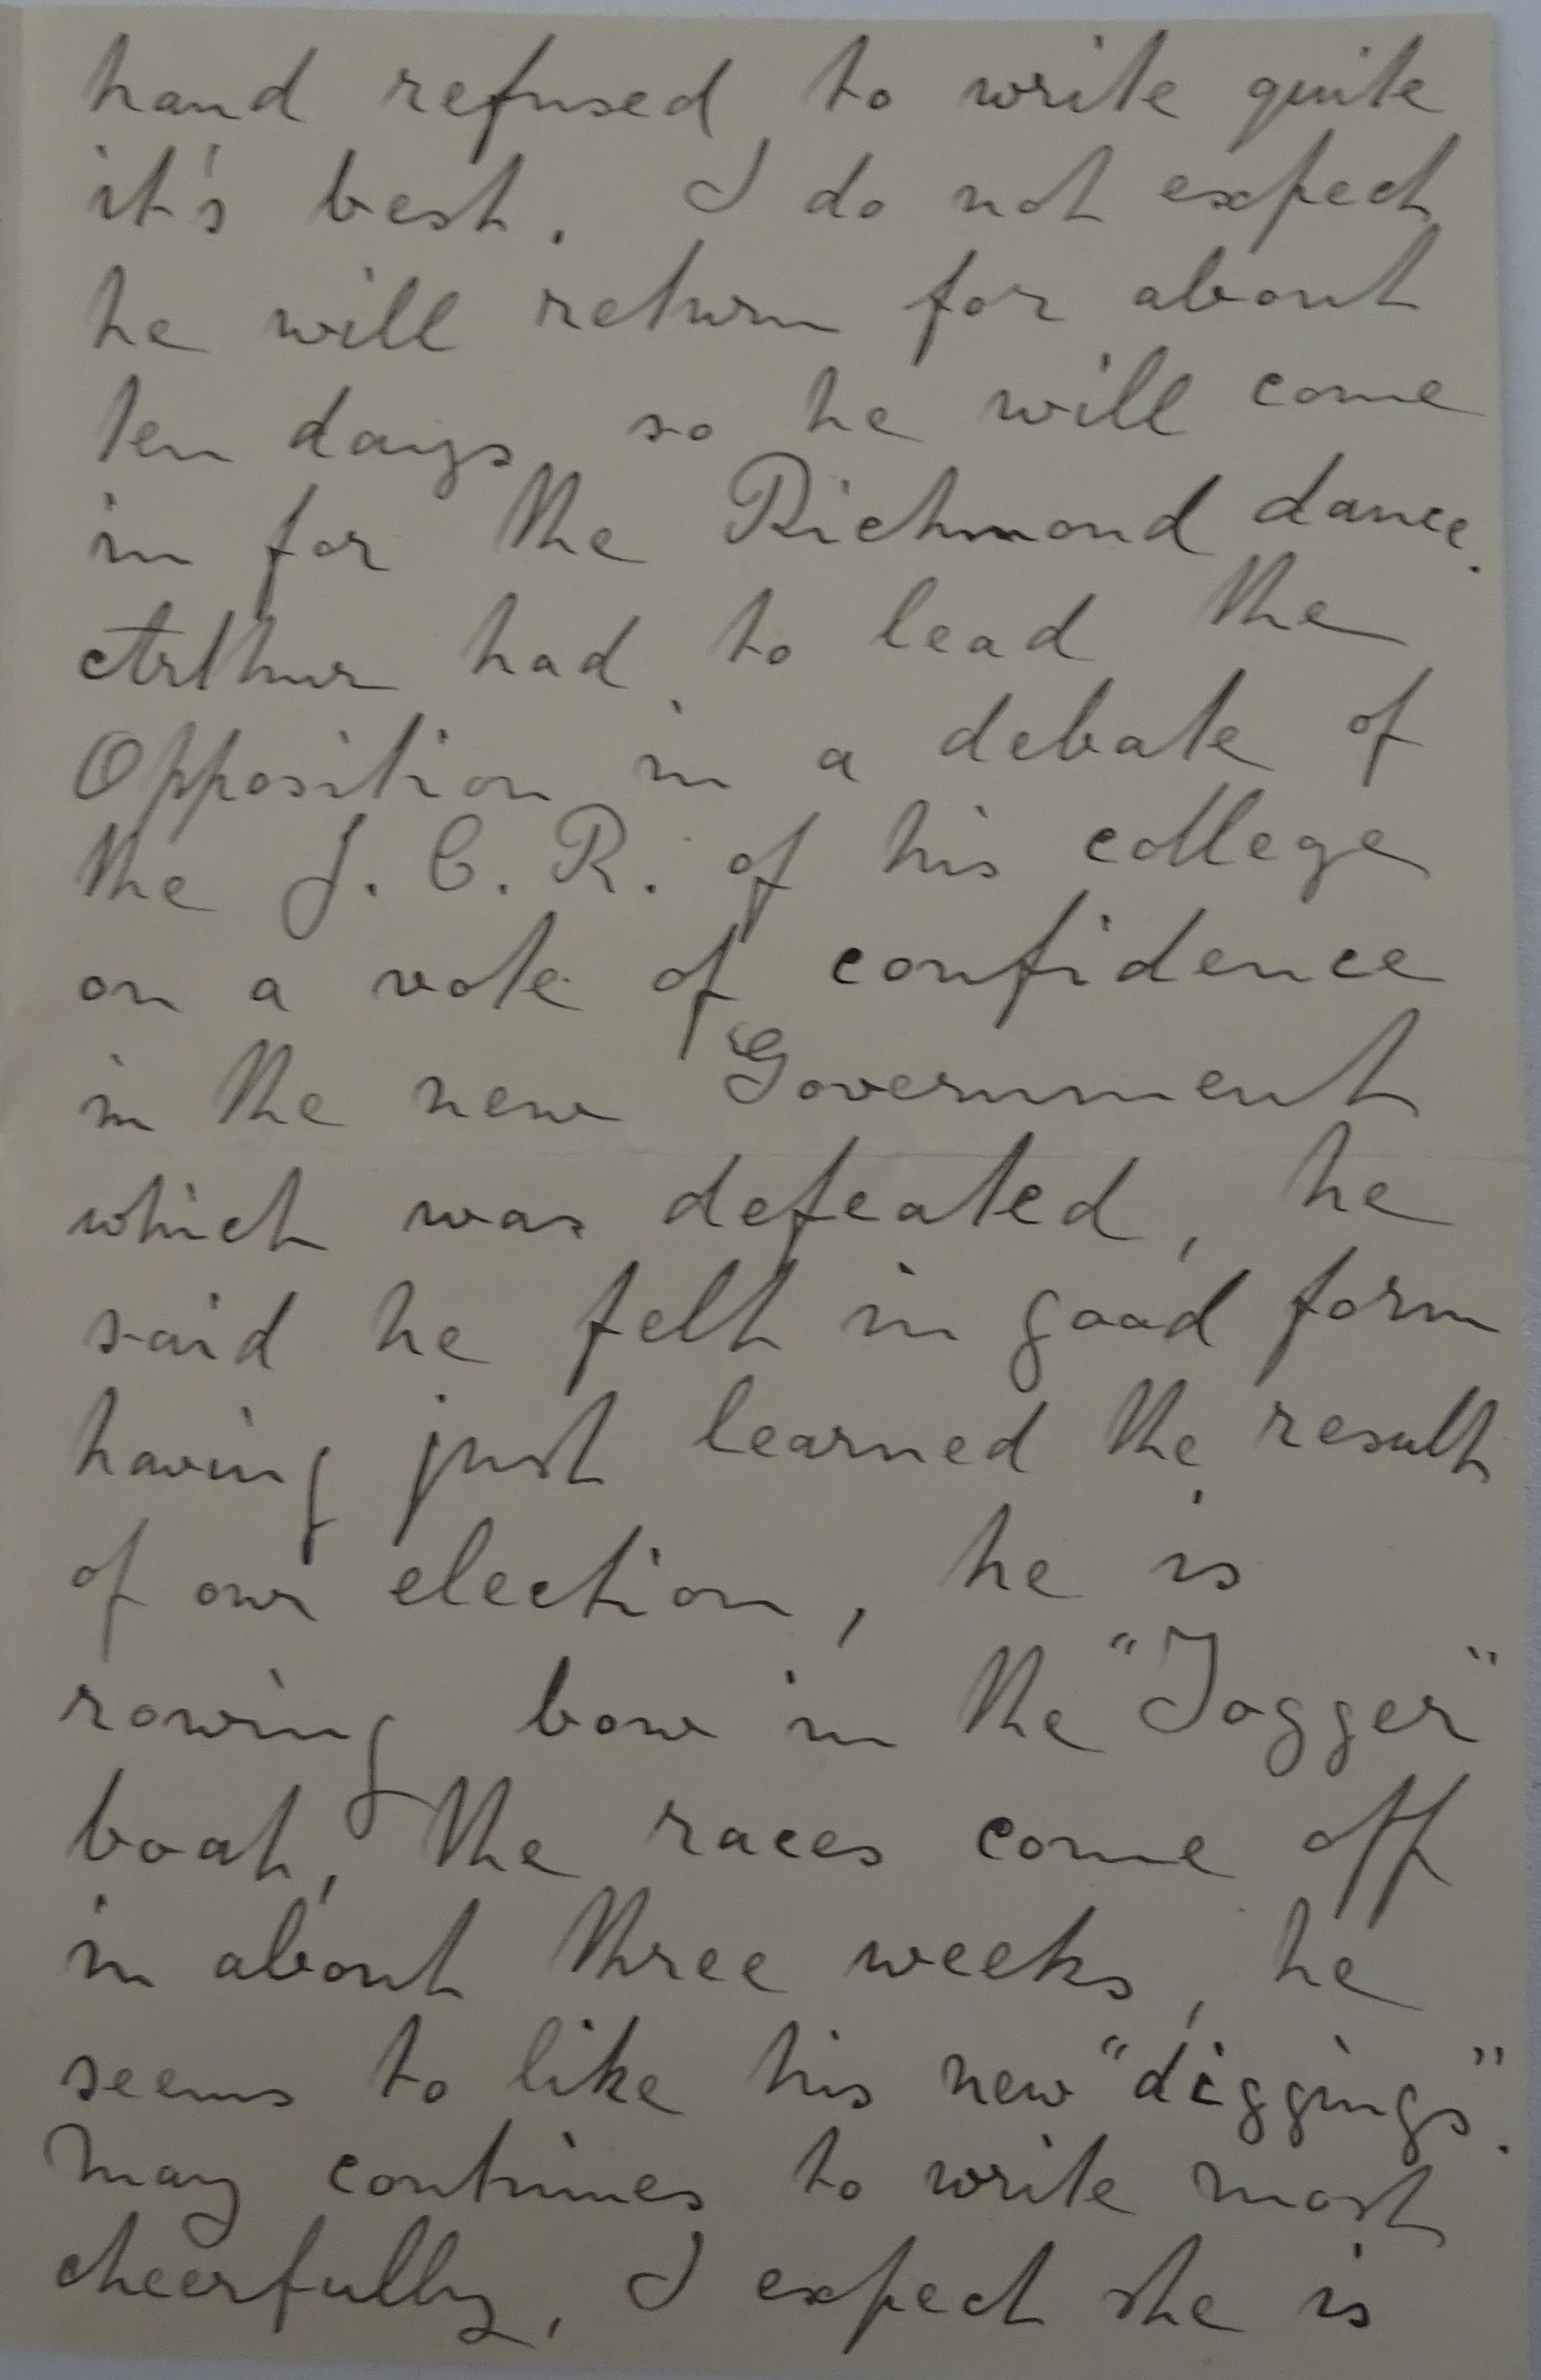 hand refused to write quite
it's best. I do not expect
he will return for about
ten days so he will come
in for the Richmond dance.
Arthur had to lead the
Opposition in a debate of
the J. C. R. of his college
on a vote of confidence
in the new Government
which was defeated, he
said he felt in good form
having just learned the result
of our election, he is
rowing bow in the "Togger"
boat, the races come off
in about three weeks, he
seems to like his new "diggings".
May continues to write most
cheerfully, I expect she is